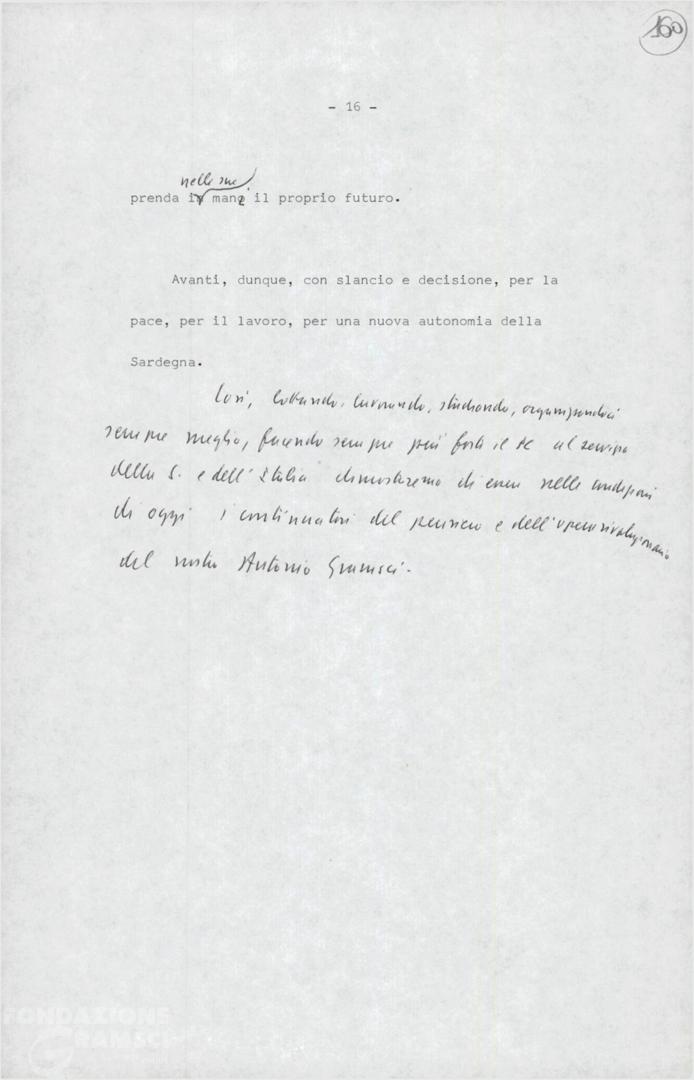 160
- 16 -
nelle sue
prenda in mano il proprio futuro.
Avanti, dunque, con slancio e decisione, per la
pace, per il lavoro, per una nuova autonomia della
Sardegna.
Così, lottando, lavorando, studiando, organizzandoci
sempre meglio, facendo sempre più forte il al servizio
della S. e dell'Italia dimostreremo di essere nelle condizioni
di oggi i continuatori del pensiero e dell'opera rivoluzionaria
del nostro Antonio Gramsci.
FONDAZIONE
GRAMSCI